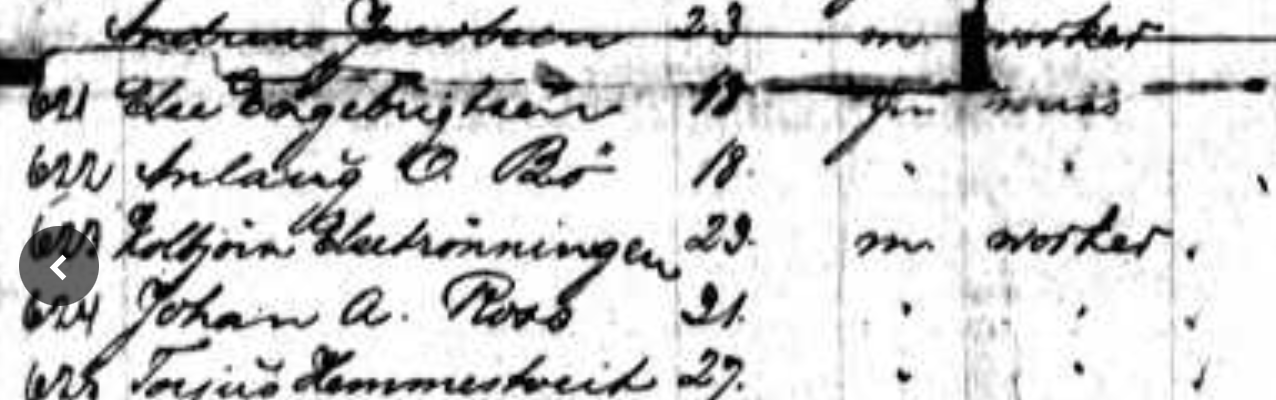 Andreas Jacobsen 23 m. worker
621 Else Engebrigtsen 18 fm miss
622 Anlaug O. Bö 18. " "
623 Kolbjörn Elsetrönningen 29. m. worker "
624 Johan A. Roso 21. " " "
625 Torjus Hemmestveit 27. " " "